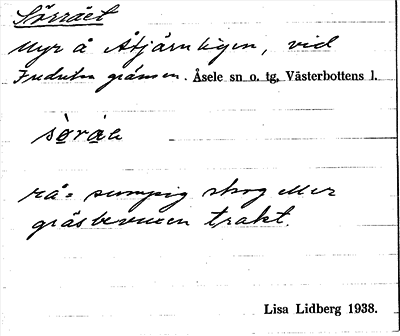 Sörrået
Myr å Åtjärnliden, vid
Fredrika gränsen. Åsele sn o. tg, Västerbottens l.
rå = sumpig skog eller
gräsbevuxen trakt.
Lisa Lidberg 1938.